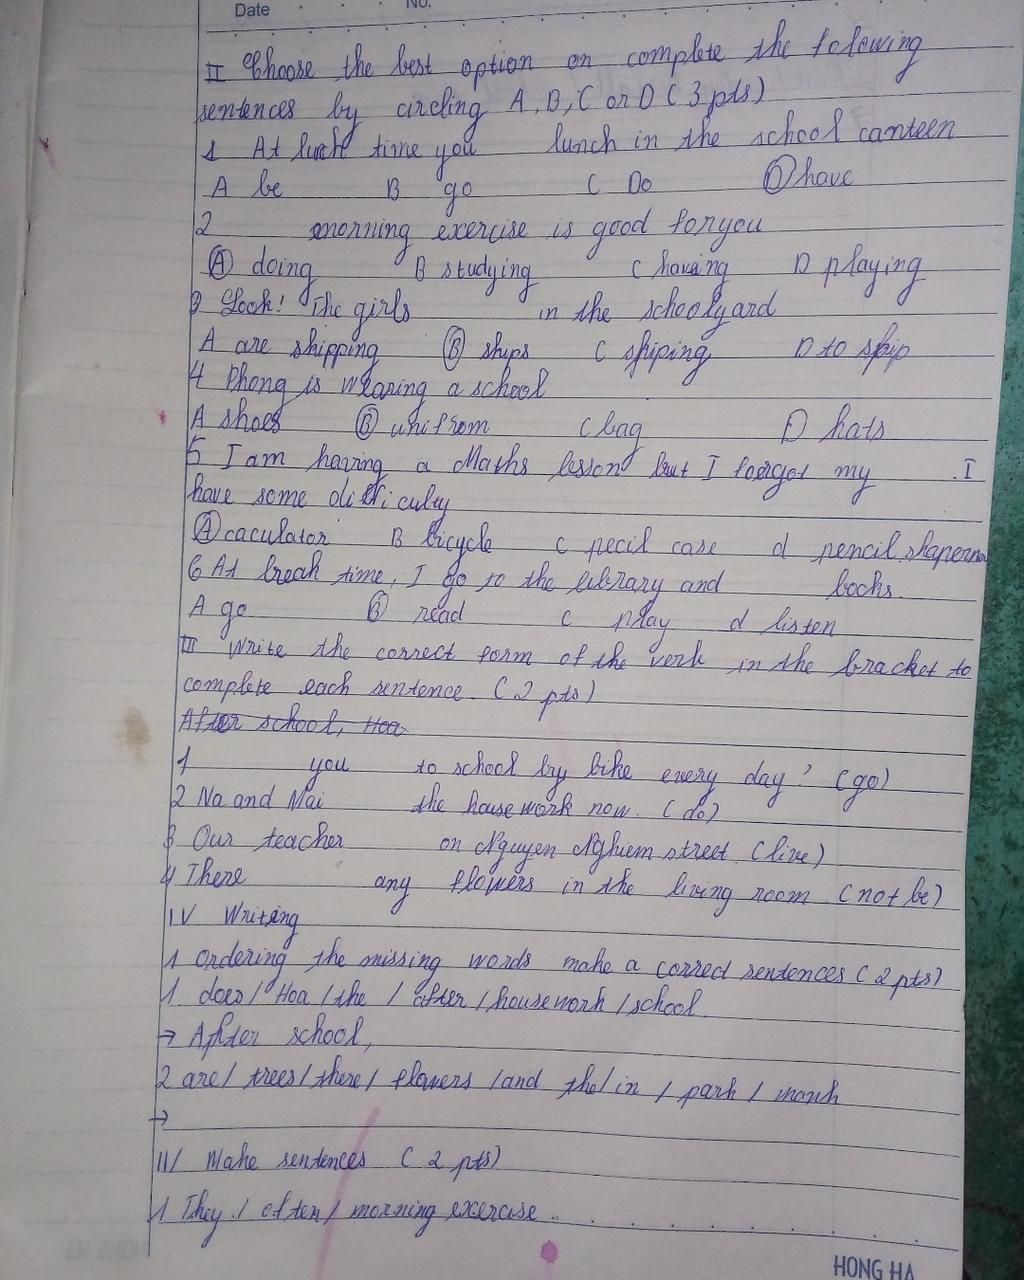 Date No.
II Choose the best option on complete the folowing
sentences by circling A, B, C or D ( 3 pts)
1 At luch time you lunch in the school canteen
A be B go C Do D have
2 morning exercise is good for you
A doing B studying C having D playing
3 Look! The girls in the schoolyard
A are skipping B skips C skiping D to skip
4 Phong is wearing a school
A shoes B unifrom C bag D hats
5 I am having a Maths lesson but I forgot my . I
have some difficulty
A caculator B bicycle C pecil case d pencil shaperna
6 At break time, I go to the library and books.
A go B read C play d listen
III Write the correct form of the verk in the bracket to
complete each sentence. ( 2 pts)
After school, Hoa
1 you to school by bike every day? (go)
2 Na and Mai the housework now. ( do)
3 Our teacher on Nguyen Nghiem street (live)
4 There any flowers in the living room (not be)
IV Writing
1 ordering the missing words make a correct sentences ( 2 pts)
1 does / Hoa / the / after / housework / school.
→ After school,
2 are / trees / there / flowers / and the / in / park /
→
II/ Make sentences ( 2 pts)
1 They / often / morning exercise.
HONG HA